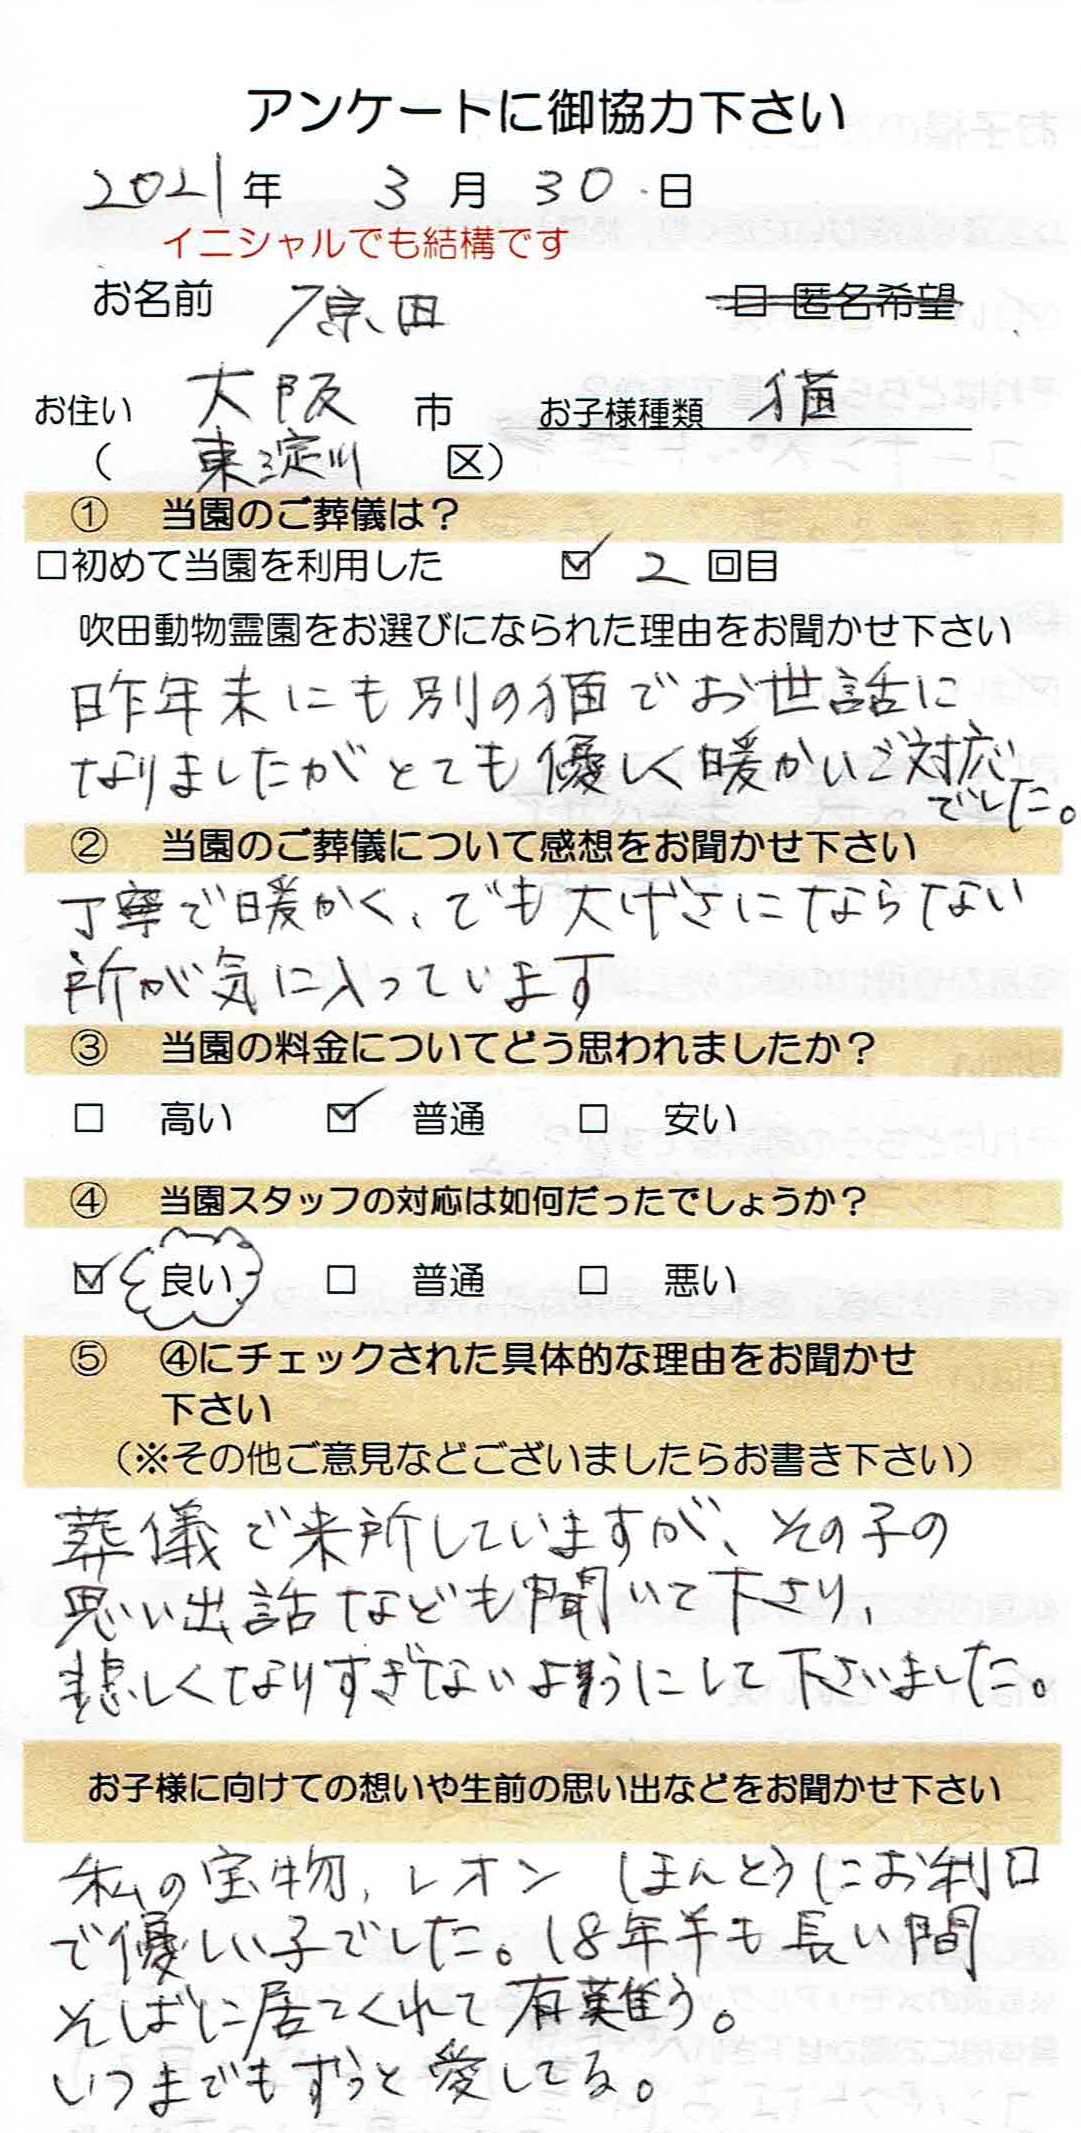 アンケートに御協力下さい
2021年 3月30日
イニシャルでも結構です
お名前 原田 □ 匿名希望
お住い 大阪 市 お子様種類 猫
（ 東淀川 区）
① 当園のご葬儀は？
□初めて当園を利用した ☑ 2 回目
吹田動物霊園をお選びになられた理由をお聞かせ下さい
昨年末にも別の猫でお世話に
なりましたがとても優しく暖かいご対応
でした。
② 当園のご葬儀について感想をお聞かせ下さい
丁寧で暖かく、でも大げさにならない
所が気に入っています
③ 当園の料金についてどう思われましたか？
□ 高い ☑ 普通 □ 安い
④ 当園スタッフの対応は如何だったでしょうか？
☑ 良い □ 普通 □ 悪い
⑤ ④にチェックされた具体的な理由をお聞かせ
下さい
（※その他ご意見などございましたらお書き下さい）
葬儀で来所していますが、その子の
思い出話なども聞いて下さり、
悲しくなりすぎないようにして下さいました。
お子様に向けての想いや生前の思い出などをお聞かせ下さい
私の宝物、レオン ほんとうにお利口
で優しい子でした。18年半も長い間
そばに居てくれて有難う。
いつまでもずっと愛してる。